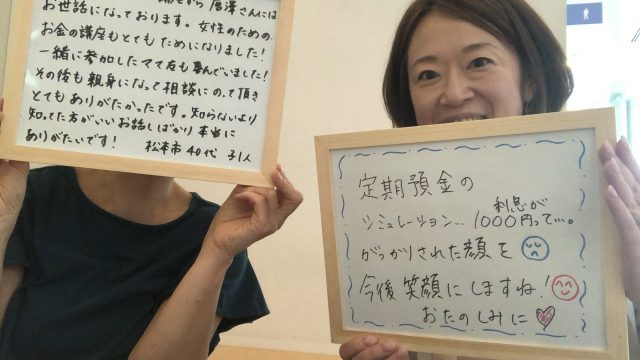 唐澤さんには
お世話になっております。女性のための
お金の講座もとても ためになりました!
一緒に参加したママ友も喜んでいました!
その後も親身になって相談にのって頂き
とてもありがたかったです。知らないより
知ってた方がいいお話しばかり本当に
ありがたいです! 松本市 40代 子1人
定期預金の
シミュレーション… 利息が1000円って…。
がっかりされた顔を
今後 笑顔に しますね!
おたのしみに